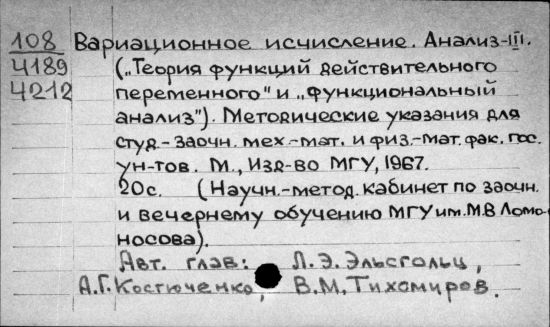 108 Вариационное исчисление. Анализ-III.
4189 („Теория функций действительного
4212 переменного" и „функциональный
анализ"). Методические указания для
студ.-заочн. мех.-мат. и физ.-мат. фак. гос.
ун-тов. М., Изд-во МГУ, 1967.
20с. (Научн.-метод. кабинет по заочн.
и вечернему обучению МГУ им. М.В Ломо-
носова).
Авт. глав: Л.Э. Эльсгольц,
А.Г. Костюченко, В.М. Тихомиров.